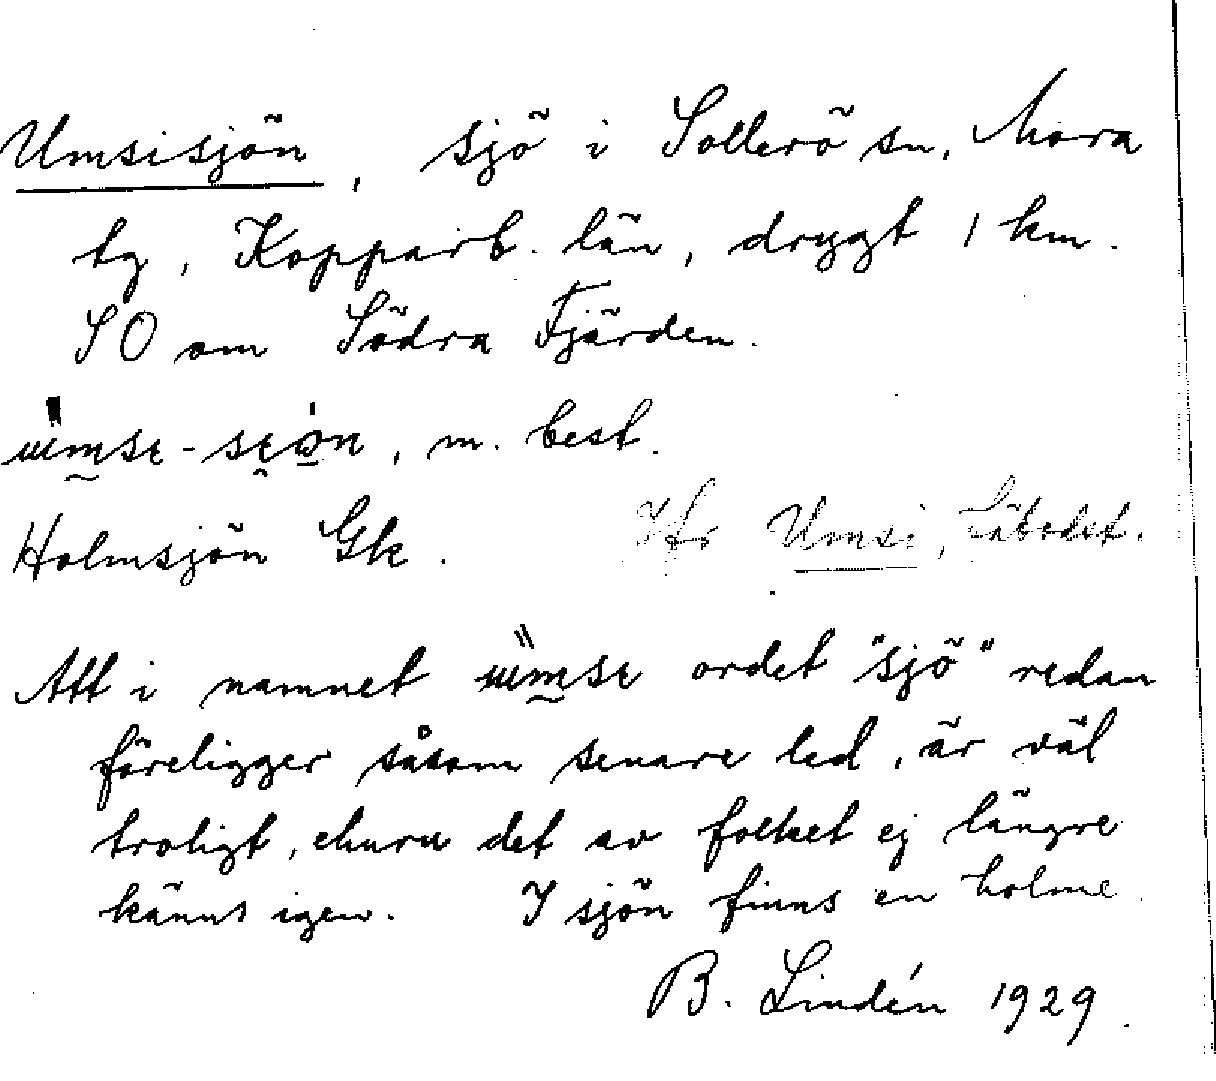 Umsisjön, sjö i Sollerö sn, Mora
tg, Kopparb. län, drygt 1 km.
SO om Södra Fjärden.
m. best.
Holmsjön Gk. Jfr Umsi, Säbodst.
Att i namnet ordet "sjö" redan
föreligger såsom senare led, är väl
troligt, ehuru det av folket ej längre
känns igen. I sjön finns en holme.
B. Lindén 1929.